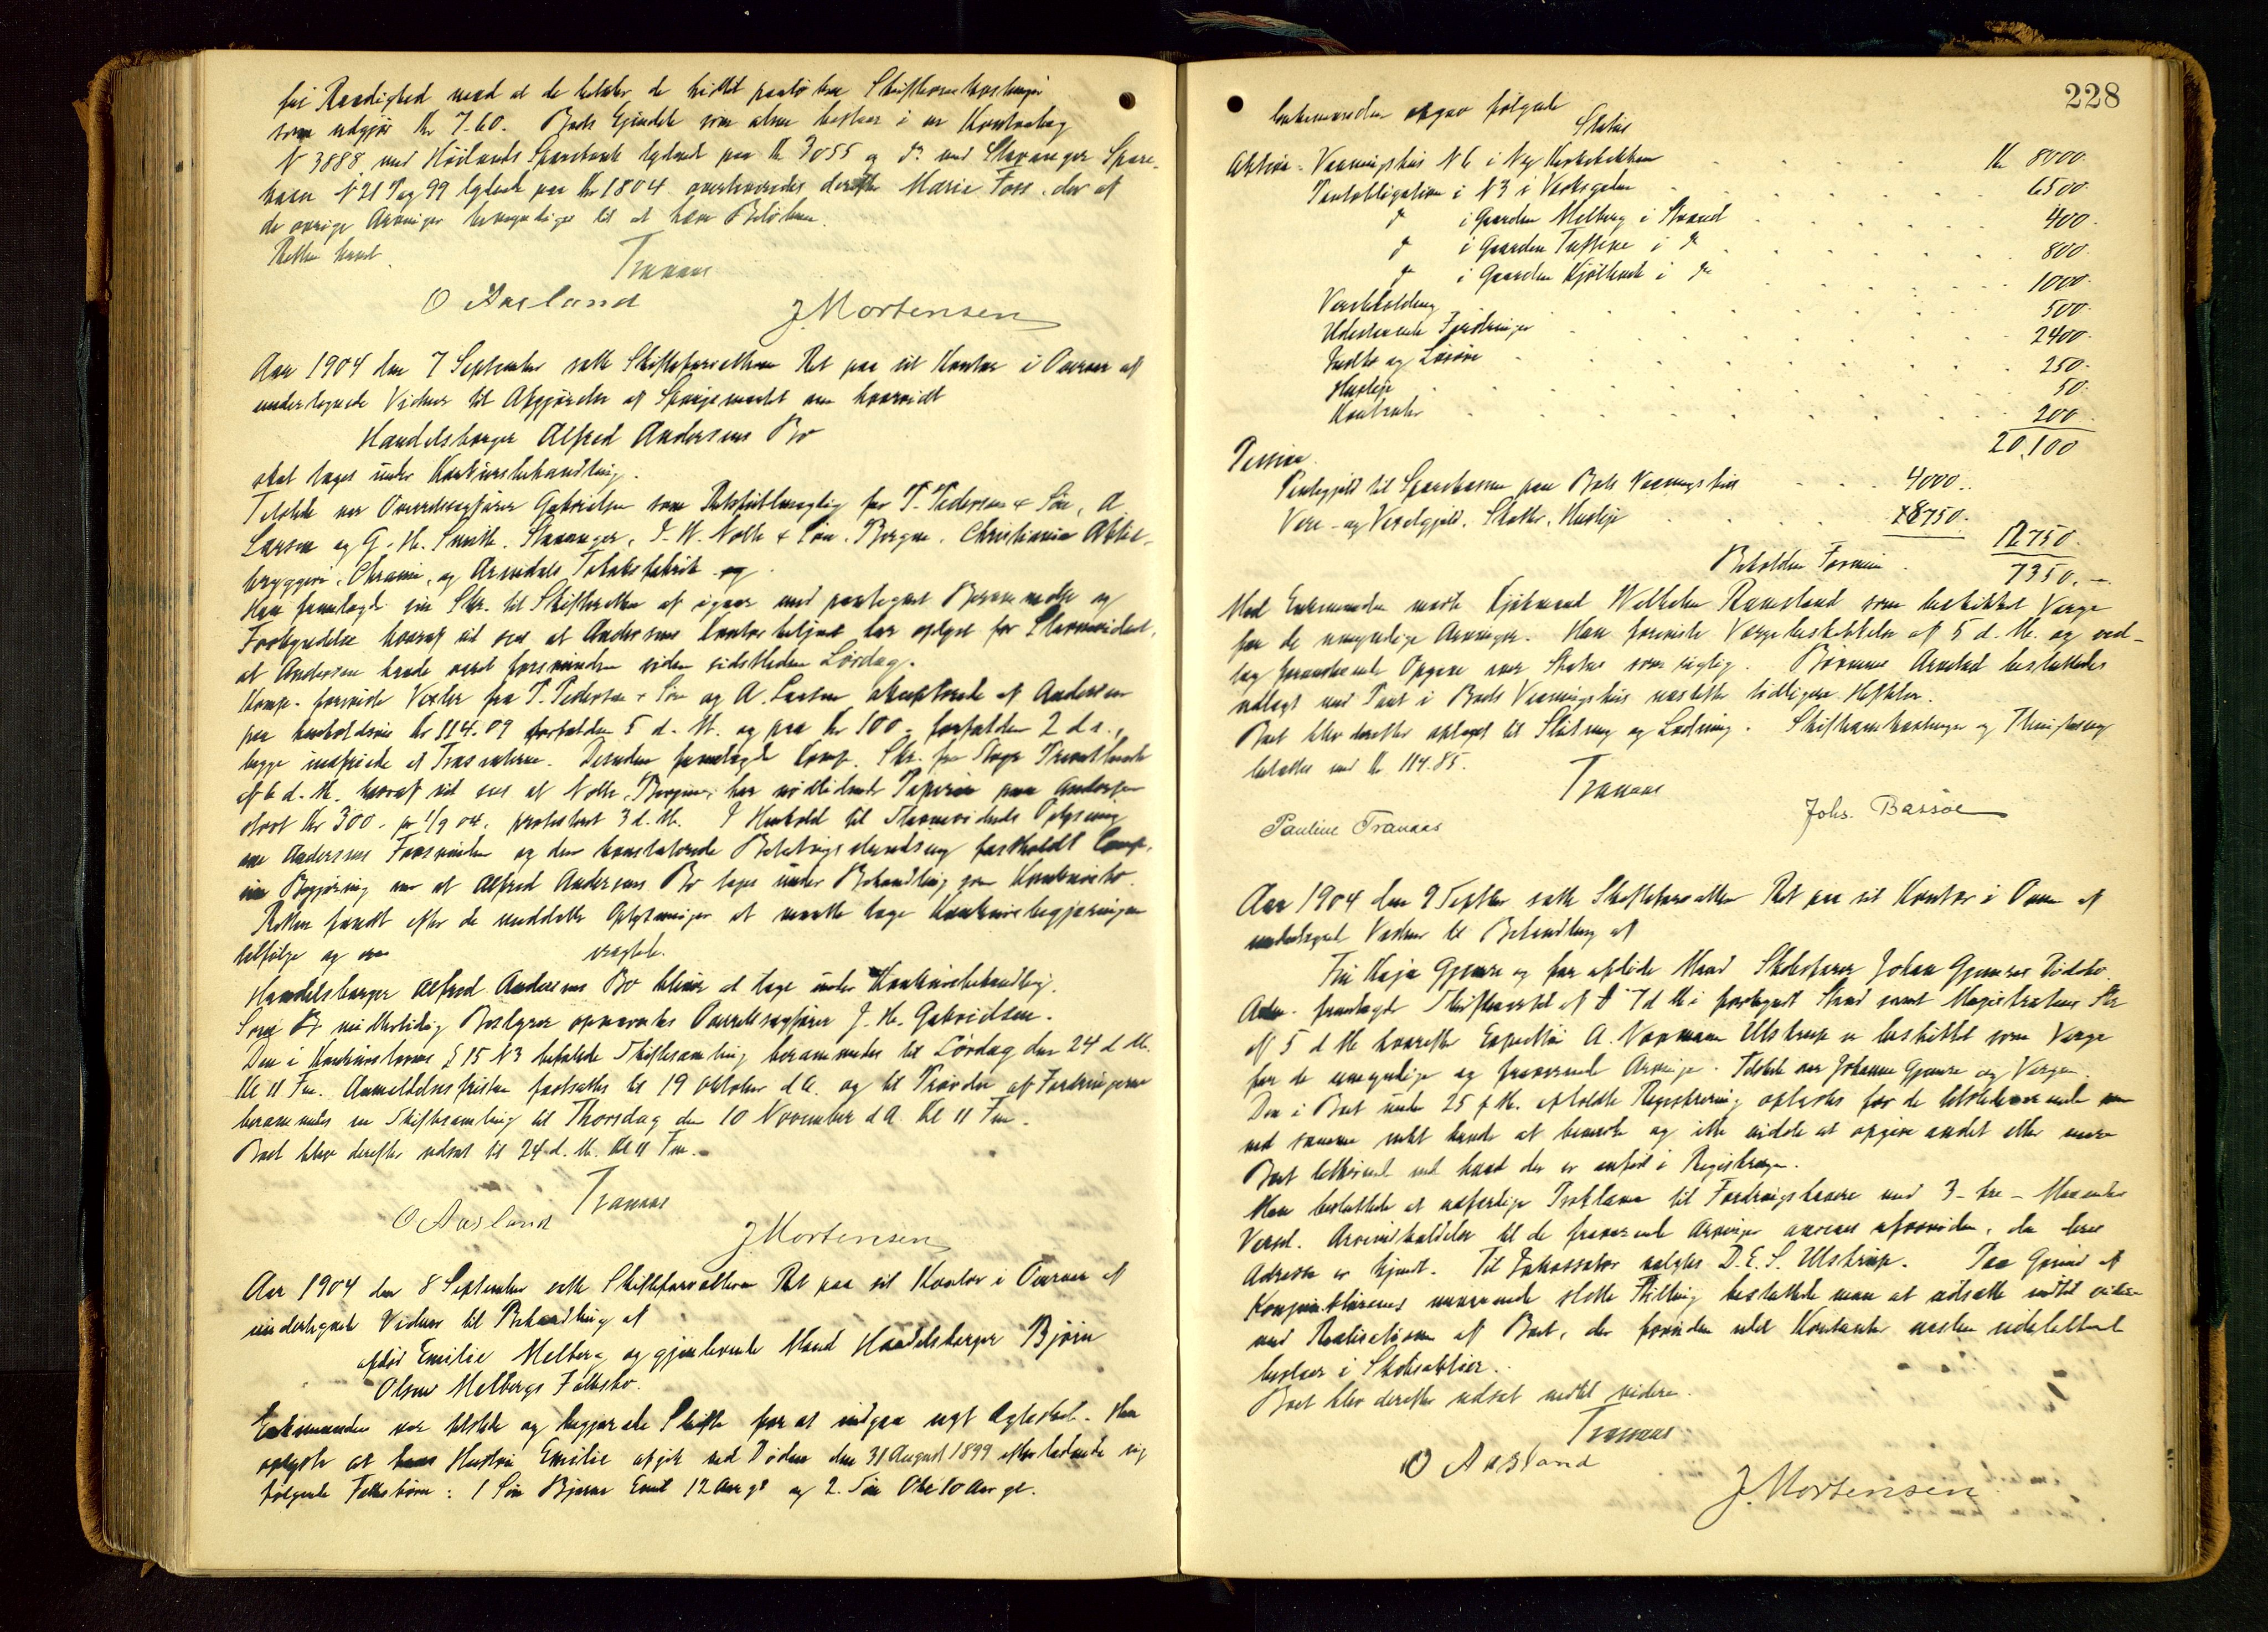 fri Raadighed mod at de betaler de hidtil paaløbne Skifteomkostninger
som udgjør Kr 7.60. Boets Eiendele som alene bestaar i en Kontrabog
N 3888 med Høilands Sparebank lydende paa Kr 3055 og do med Stavanger Spare-
kasse N 21 Pag 99 lydende paa Kr 1804 overleveredes derefter Marie Foss, der af
de øvrige Arvinger bemyndiges til at hæve Beløbene.
Retten hævet.
Tranaas
O Aasland J. Mortensen
Aar 1904 den 7 September satte Skifteforvalteren Ret paa sit Kontor i Overvær af
undertegnede Vidner til Afgjørelse af Spørgsmaalet om hvorvidt
Handelsborger Alfred Andersens Bo
skal tages under Konkursbehandling.
Tilstede var Overretssagfører Gabrielsen som Retsfuldmægtig for T. Pedersen & Søn, A.
Larsen og G. H. Smith, Stavanger, J. W. Nolte & Søn, Bergen, Christiania Aktie-
bryggeri, Chrania, og Arendals Tobaksfabrik
Han fremlagde sin Skr. til Skifteretten af igaar med paategnet Berammelse og
Forkyndelse hvoraf vil sees at Andersens Kontorbetjent har oplyst for Stævnevidnet,
at Andersen havde været forsvunden siden sidstleden Lørdag.
Komp. foreviste Vexler fra T. Pedersen & Søn og A. Larsen accepterede af Andersen
paa henholdsvis Kr 114.09 forfalden 5 d. M. og paa Kr 100.- forfalden 2 d. s.,
begge indfriede af Trassenterne. Desuden fremlagde Komp. Skr. fra Privatbank
af 6 d. M. hvoraf vil sees at Nolte, Bergen, har nødlidende Papirer paa Andersen
stort Kr 300.- pr 1/9 04, protesteret 3 d. M. I Henhold til Stævnevidnets Oplysning
om Andersens Forsvinden og den konstaterede Betalingsstandsning fastholdt Comp.
sin Begjæring om at Alfred Andersens Bo tages under Behandling som Konkursbo.
Retten fandt efter de meddelte Oplysninger at maatte tage Konkursbegjæringen
tilfølge og eragtede.
Handelsborger Alfred Andersens Bo bliver at tage under Konkursbehandling.
Som midlertidig Bestyrer opnævntes Overretssagfører J. M. Gabrielsen.
Den i Konkurslovens § 15 N 3 befalede Skiftesamling berammedes til Lørdag den 24 d. M.
Kl 11 Fm. Anmeldelsesfristen fastsattes til 19 Oktober d A. og til Prøvelse af Fordringerne
berammedes en Skiftesamling til Thorsdag den 10 November d A. Kl 11 Fm.
Boet blev derefter udsat til 24 d. M. Kl 11 Fm.
Tranaas
O Aasland J. Mortensen
Aar 1904 den 8 September satte Skifteforvalteren Ret paa sit Kontor i Overvær af
undertegnede Vidner til Behandling af
afdød Emilie Melberg og gjenlevende Mand Handelsborger Bjørn
Olsen Melbergs Fællesbo.
Enkemanden var tilstede og begjærede Skifte for at indgaa nyt Ægteskab. Han
oplyste at Hustru Emilie afgik ved Døden den 31 August 1899 efterladende sig
følgende Fællesbørn: 1 Søn Bjarne Emil 12 Aar gl og 2. Søn Ole 10 Aar gl.
228
Enkemanden opgav følgende
Status
Aktiva. Vaaningshus N 6 i Nye Kirkebakken Kr 8000.
Panteobligation i N 3 i Verksgaden 6500.
do i Gaarden Melberg i Strand 400.
do i Gaarden Tuftene i do 800.
do i Gaarden i do 1000.
Varebeholdning 500.
Udestaaende Fordringer 2400.
Indbo og Løsøre 250.
Husleje 50.
Kontanter 200
20.100
Passiva.
Pantegjæld til Sparekassen paa Boets Vaaningshus 4000.
Vare- og Vexelgjæld, Skatter, Husleje 8750.
12750.
Beholden Formue 7350.-
Med Enkemanden mødte Kjøbmand Wilhelm Ramsland som beskikket Værge
for de umyndige Arvinger. Han foreviste Værgebeskikkelse af 5 d. M. og ved-
tog foranstaaende Opgave over Status som rigtig. Børnenes Arvelod besluttedes
udlagt med Pant i Boets Vaaningshus næstefter tidligere Heftelser.
Boet blev derefter optaget til Slutning og Lodning. Skifteomkostninger og Thinglæsning
betaltes med Kr 114.85.
Tranaas
Pauline Tranaas Johs. Bassøe
Aar 1904 den 9 Septbr satte Skifteforvalteren Ret paa sit Kontor i Overv. af
undertegnede Vidner til Behandling af
Fru Kaja Gjemre og før afdøde Mand Skibsfører Johan Gjemres Dødsbo.
Adm. fremlagde Skifteanmeldelse af 7 d M i foreliggende Stand samt Magistratens Skr
af 5 d M hvorefter Expeditør A. Normann Ulstrup er beskikket som Værge
for de umyndige og fraværende Arvinger. Tilstede var Johanne Gjemre og Værgen.
Den i Boet under 25 f. M. afholdte Registrering oplæstes for de tilstedeværende som
ved samme intet havde at bemærke og ikke vidste at opgive andet eller mere
Boet tilhørende end hvad der er anført i Registreringen.
Man besluttede at udfærdige Proklama til Fordringshavere med 3 - tre - Maaneders
Varsel. Arveindkaldelse til de fraværende Arvinger ansees ufornøden, da deres
Adresse er kjendt. Til Inkassator valgtes D. E. S. Ulstrup. Paa Grund af
Konjunkturernes nuværende slette Stilling besluttede man at udsætte indtil videre
med Realisation af Boet, der foruden Kontanter næsten udelukkende
bestaar i Skibsaktier.
Boet blev derefter udsat indtil videre.
Tranaas
O Aasland
J. Mortensen